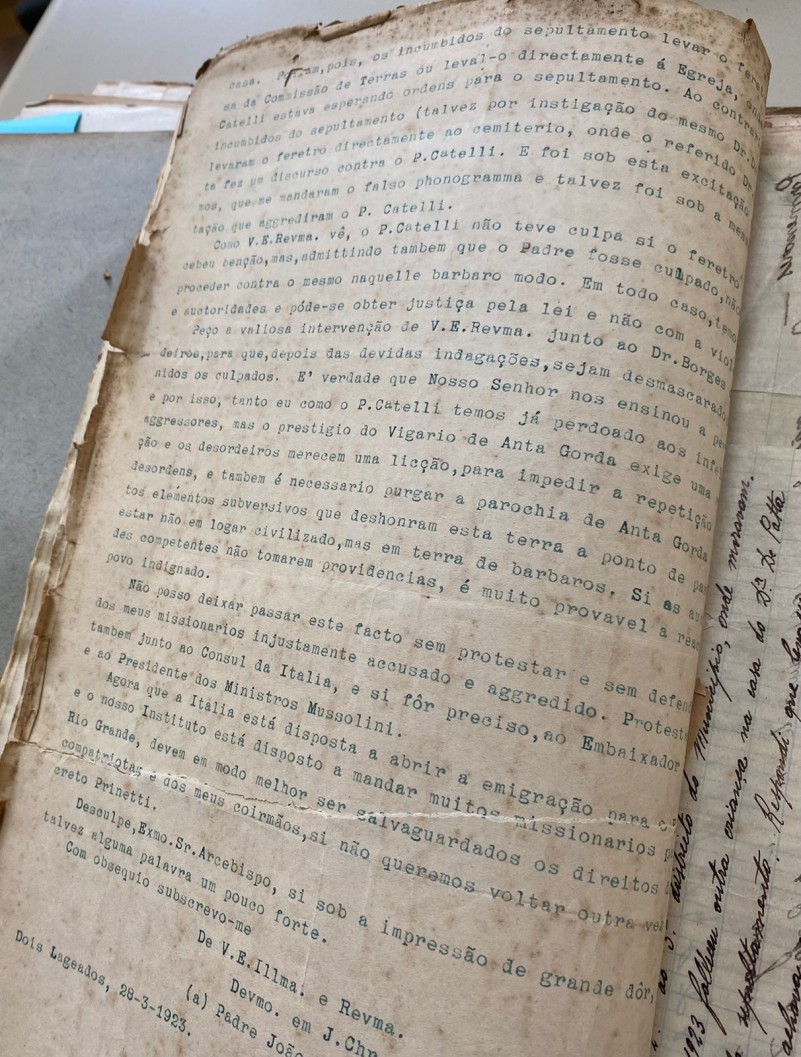 casa. Podiam,pois, os incumbidos do sepultamento levar o feret
sa da Commissão de Terras ou leval-o directamente á Egreja, ond
Catelli estava esperando ordens para o sepultamento. Ao contra
incumbidos do sepultamento (talvez por instigação do mesmo Dr.D
levaram o feretro directamente ao cemiterio, onde o referido Dr
ta fez um discurso contra o P.Catelli. E foi sob esta excitação
mos, que me mandaram o falso phonogramma e talvez foi sob a mes
tação que aggrediram o P. Catelli.
Como V.E.Revma. vê, o P.Catelli não teve culpa si o feretro
cebeu benção,mas,admittindo tambem que o Padre fosse culpado,não
proceder contra o mesmo naquelle barbaro modo. Em todo caso,temo
e auctoridades e póde-se obter justiça pela lei e não com a viol
Peço a valiosa intervenção de V.E.Revma. junto ao Dr.Borges
deiros,para que,depois das devidas indagações,sejam desmascarado
nidos os culpados. E' verdade que Nosso Senhor nos ensinou a pe
e por isso, tanto eu como o P.Catelli temos já perdoado aos infe
aggressores, mas o prestigio do Vigario de Anta Gorda exige uma
ção e os desordeiros merecem uma licção,para impedir a repetição
desordens, e tambem é necessario purgar a parochia de Anta Gorda
tos elementos subversivos que deshonram esta terra a ponto de pa
estar não em logar civilizado,mas em terra de barbaros. Si as au
des competentes não tomarem providencias, é muito provavel a rea
povo indignado.
Não posso deixar passar este facto sem protestar e sem defend
dos meus missionarios injustamente accusado e aggredido. Protest
tambem junto ao Consul da Italia, e si fôr preciso,ao Embaixador
e ao Presidente dos Ministros Mussolini.
Agora que a Italia está disposta a abrir a emigração para o
e o nosso Instituto está disposto a mandar muitos missionarios p
Rio Grande, devem em modo melhor ser salvaguardados os direitos
compatriotas e dos meus coirmãos,si não queremos voltar outra vez
creto Prinetti.
Desculpe,Exmo.Sr.Arcebispo, si sob a impressão de grande dôr,
talvez alguma palavra um pouco forte.
Com obsequio subscrevo-me
De V.E.Illma. e Revma.
Devmo. em J.Chr
(a) Padre João
Dois Lageados, 28-3-1923.
districto do Municipio, onde moravam.
1923 falleu outra criança na casa do Dr. De Patta
sepultamento. Respondi que